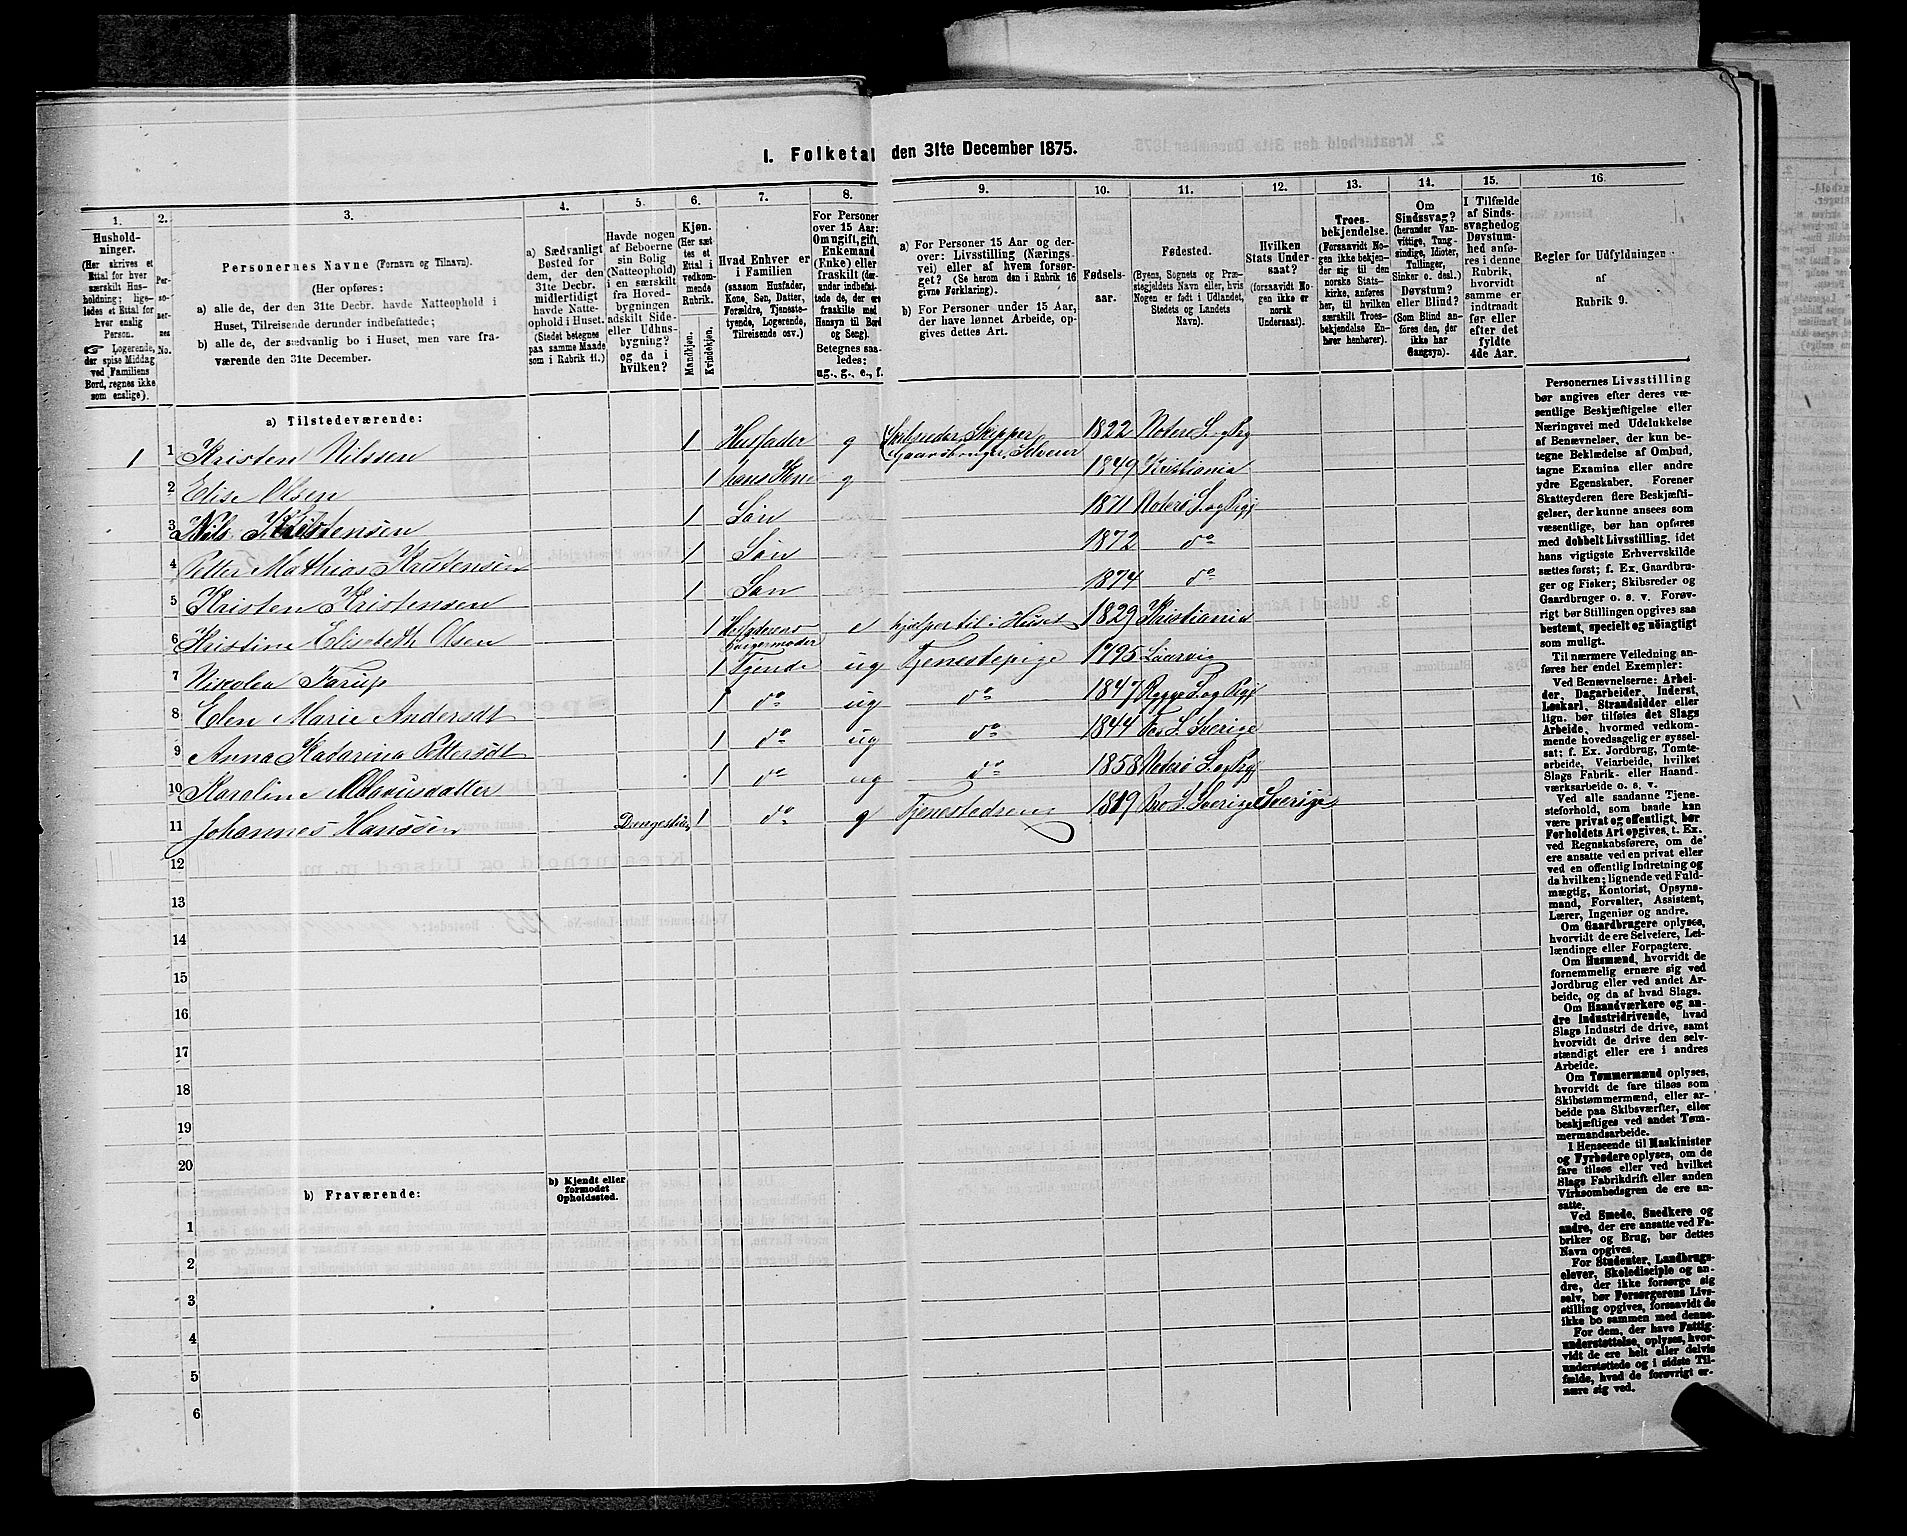 I. Folketal den 31te December 1875.
1. 2. 3. 4. 5. 6. 7. 8. 9. 10. 11. 12. 13. 14. 15. 16.
Hushold-
ninger.
(Her skrives et
Ettal for hver
særskilt Hus-
holdning; lige-
ledes et Ettal for
hver enslig
Person.
☞ Logerende,
der spise Middag
ved Familiens
Bord, regnes ikke
som enslige).
Per-
so-
ner-
nes
No.
Personernes Navne (Fornavn og Tilnavn).
(Her opføres:
a) alle de, der den 31te Decbr. havde Natteophold i
Huset, Tilreisende derunder indbefattede;
b) alle de, der sædvanlig bo i Huset, men vare fra-
værende den 31te December.
a) Sædvanligt
Bosted for
dem, der den
31te Decbr.
midlertidigt
havde Natte-
ophold i Huset.
(Stedet betegnes
paa samme Maade
som i Rubrik 11.)
Havde nogen
af Beboerne
sin Bolig
(Natteophold)
i en særskilt
fra Hoved-
bygningen
adskilt Side-
eller Udhus-
bygning?
og da i
hvilken?
Kjøn.
(Her sæt-
tes et
Ettal i
vedkom-
mende
Rubrik.
Mandkjøn.
Kvindekjøn.
Hvad Enhver er
i Familien
(saasom Husfader,
Kone, Søn, Datter,
Forældre, Tjeneste-
tyende, Logerende,
Tilreisende osv.)
For Personer
over 15 Aar:
Om ugift, gift,
Enkemand
(Enke) eller
fraskilt (der-
under indbefat-
tede de, der ere
fraskilte med
Hensyn til Bord
og Seng).
Betegnes saa-
ledes:
ug., g., e., f.
a) For Personer 15 Aar og der-
over: Livsstilling (Nærings-
vei) eller af hvem forsør-
get? (Se herom den i Rubrik 16
givne Forklaring).
b) For Personer under 15 Aar,
der have lønnet Arbeide, op-
gives dettes Art.
Fødsels-
aar.
Fødested.
(Byens, Sognets og Præ-
stegjeldets Navn eller, hvis
Nogen er født i Udlandet,
Stedets og Landets
Navn).
Hvilken
Stats Under-
saat?
(forsaavidt No-
gen ikke er
norsk
Undersaat).
Troes-
bekjendelse.
(Forsaavidt No-
gen ikke bekjen-
der sig til den
norske Stats-
kirke, anføres
her, til hvilken
særskilt Troes-
bekjendelse En-
hver henhører).
Om
Sindssvag?
(herunder Van-
vittige, Tung-
sindige, Idioter,
Tullinger,
Sinker o. desl.)
Døvstum?
eller Blind?
(Som Blind an-
føres den, der
ikke har
Gangsyn).
I Tilfælde
af Sinds-
svaghed og
Døvstum-
hed anfø-
res i denne
Rubrik,
hvorvidt
samme er
indtraadt
før eller
efter det
fyldte
4de Aar.
Regler for Udfyldningen
af
Rubrik 9.
a) Tilstedeværende:
1 1 Kristen Nilssen 1 Husfader g Skibsreder, Skipper Gaardbruger, Selveier 1822 Noterø S. og Pg
2 Elise Olsen 1 hans Kone g 1849 Kristiania
3 Nils Kristensen 1 Søn 1871 Noterø S. og Pgj
4 Petter Mathias Kristensen 1 Søn 1872 do
5 Kristen Kristensen 1 Søn 1874 do
6 Kristine Elisabeth Olsen 1 Husfaderens Svigermoder e hjælper til i Huset 1829 Kristiania
7 Nikolea Tarup 1 Tjende ug Tjenestepige 1795 Laurvig
8 Elen Marie Andersdt 1 do ug do 1847 Rygge S. og Pgj
9 Anna Katarina Pettersdt 1 do ug do 1844 S. Sverige
10 Karoline 1 do ug do 1858 Noterø S. og Pgj
11 Johannes Hanssen Drengestue 1 do g Tjenestedreng 1819 S. Sverige Sverige
12
13
14
15
16
17
18
19
20
b) Fraværende:
b) Kjendt eller
formodet
Opholdssted.
1
2
3
4
5
6
Personernes Livsstilling
bør angives efter deres væ-
sentlige Beskjæftigelse eller
Næringsvei med Udelukkelse
af Benævnelser, der kun be-
tegne Beklædelse af Ombud,
tagne Examina eller andre
ydre Egenskaber. Forener
Skatteyderen flere Beskjæfti-
gelser, der kunne ansees som
væsentlige, bør han opføres
med dobbelt Livsstilling, idet
hans vigtigste Erhvervskilde
sættes først; f. Ex. Gaardbru-
ger og Fisker; Skibsreder og
Gaardbruger o. s. v. Forøv-
rigt bør Stillingen opgives saa
bestemt, specielt og nøiagtigt
som muligt.
Til nærmere Veiledning an-
føres her endel Exempler:
Ved Benævnelserne: Arbei-
der, Dagarbeider, Inderst,
Løskarl, Strandsidder eller
lign. bør tilføies det Slags
Arbeide, hvormed vedkom-
mende hovedsagelig er syssel-
sat; f. Ex. Jordbrug, Tomte-
arbeide, Veiarbeide, hvilket
Slags Fabrik- eller Haand-
værksarbeide o. s. v.
Ved alle saadanne Tjene-
steforhold, som baade kan
være privat og offentligt, bør
Forholdets Art opgives, t. Ex.
ved Regnskabsførere, om de
ere ansatte ved en privat eller
ved en offentlig Indretning og
da hvilken; lignende ved Fuld-
mægtig, Kontorist, Opsyns-
mand, Forvalter, Assistent,
Lærer, Ingeniør og andre.
Om Gaardbrugere oplyses,
hvorvidt de ere Selveiere, Lei-
lændinge eller Forpagtere.
Om Husmænd, hvorvidt de
fornemmelig ernære sig ved
Jordbrug eller ved andet Ar-
beide, og da af hvad Slags.
Om Haandværkere og an-
dre Industridrivende, hvad
Slags Industri de drive, samt
hvorvidt de drive den selv-
stændigt eller ere i andres
Arbeide.
Om Tømmermænd oplyses,
hvorvidt de fare tilsøs som
Skibstømmermænd, eller ar-
beide paa Skibsværfter, eller
beskjæftiges ved andet Tøm-
mermandsarbeide.
I Henseende til Maskinister
og Fyrbødere oplyses, om de
fare tilsøs eller ved hvilket
Slags Fabrikdrift eller anden
Virksomhedsgren de ere an-
satte.
Ved Smede, Snedkere og
andre, der ere ansatte ved Fa-
briker og Brug, bør dettes
Navn opgives.
For Studenter, Landbrugs-
elever, Skoledisciple og an-
dre, der ikke forsørge sig
selv, bør Forsørgerens Livs-
stilling opgives, forsaavidt de
ikke bo sammen med denne.
For dem, der have Fattig-
understøttelse, oplyses, hvor-
vidt de ere helt eller delvis
understøttede og i sidste Til-
fælde, hvad de forøvrigt er-
nære sig ved.